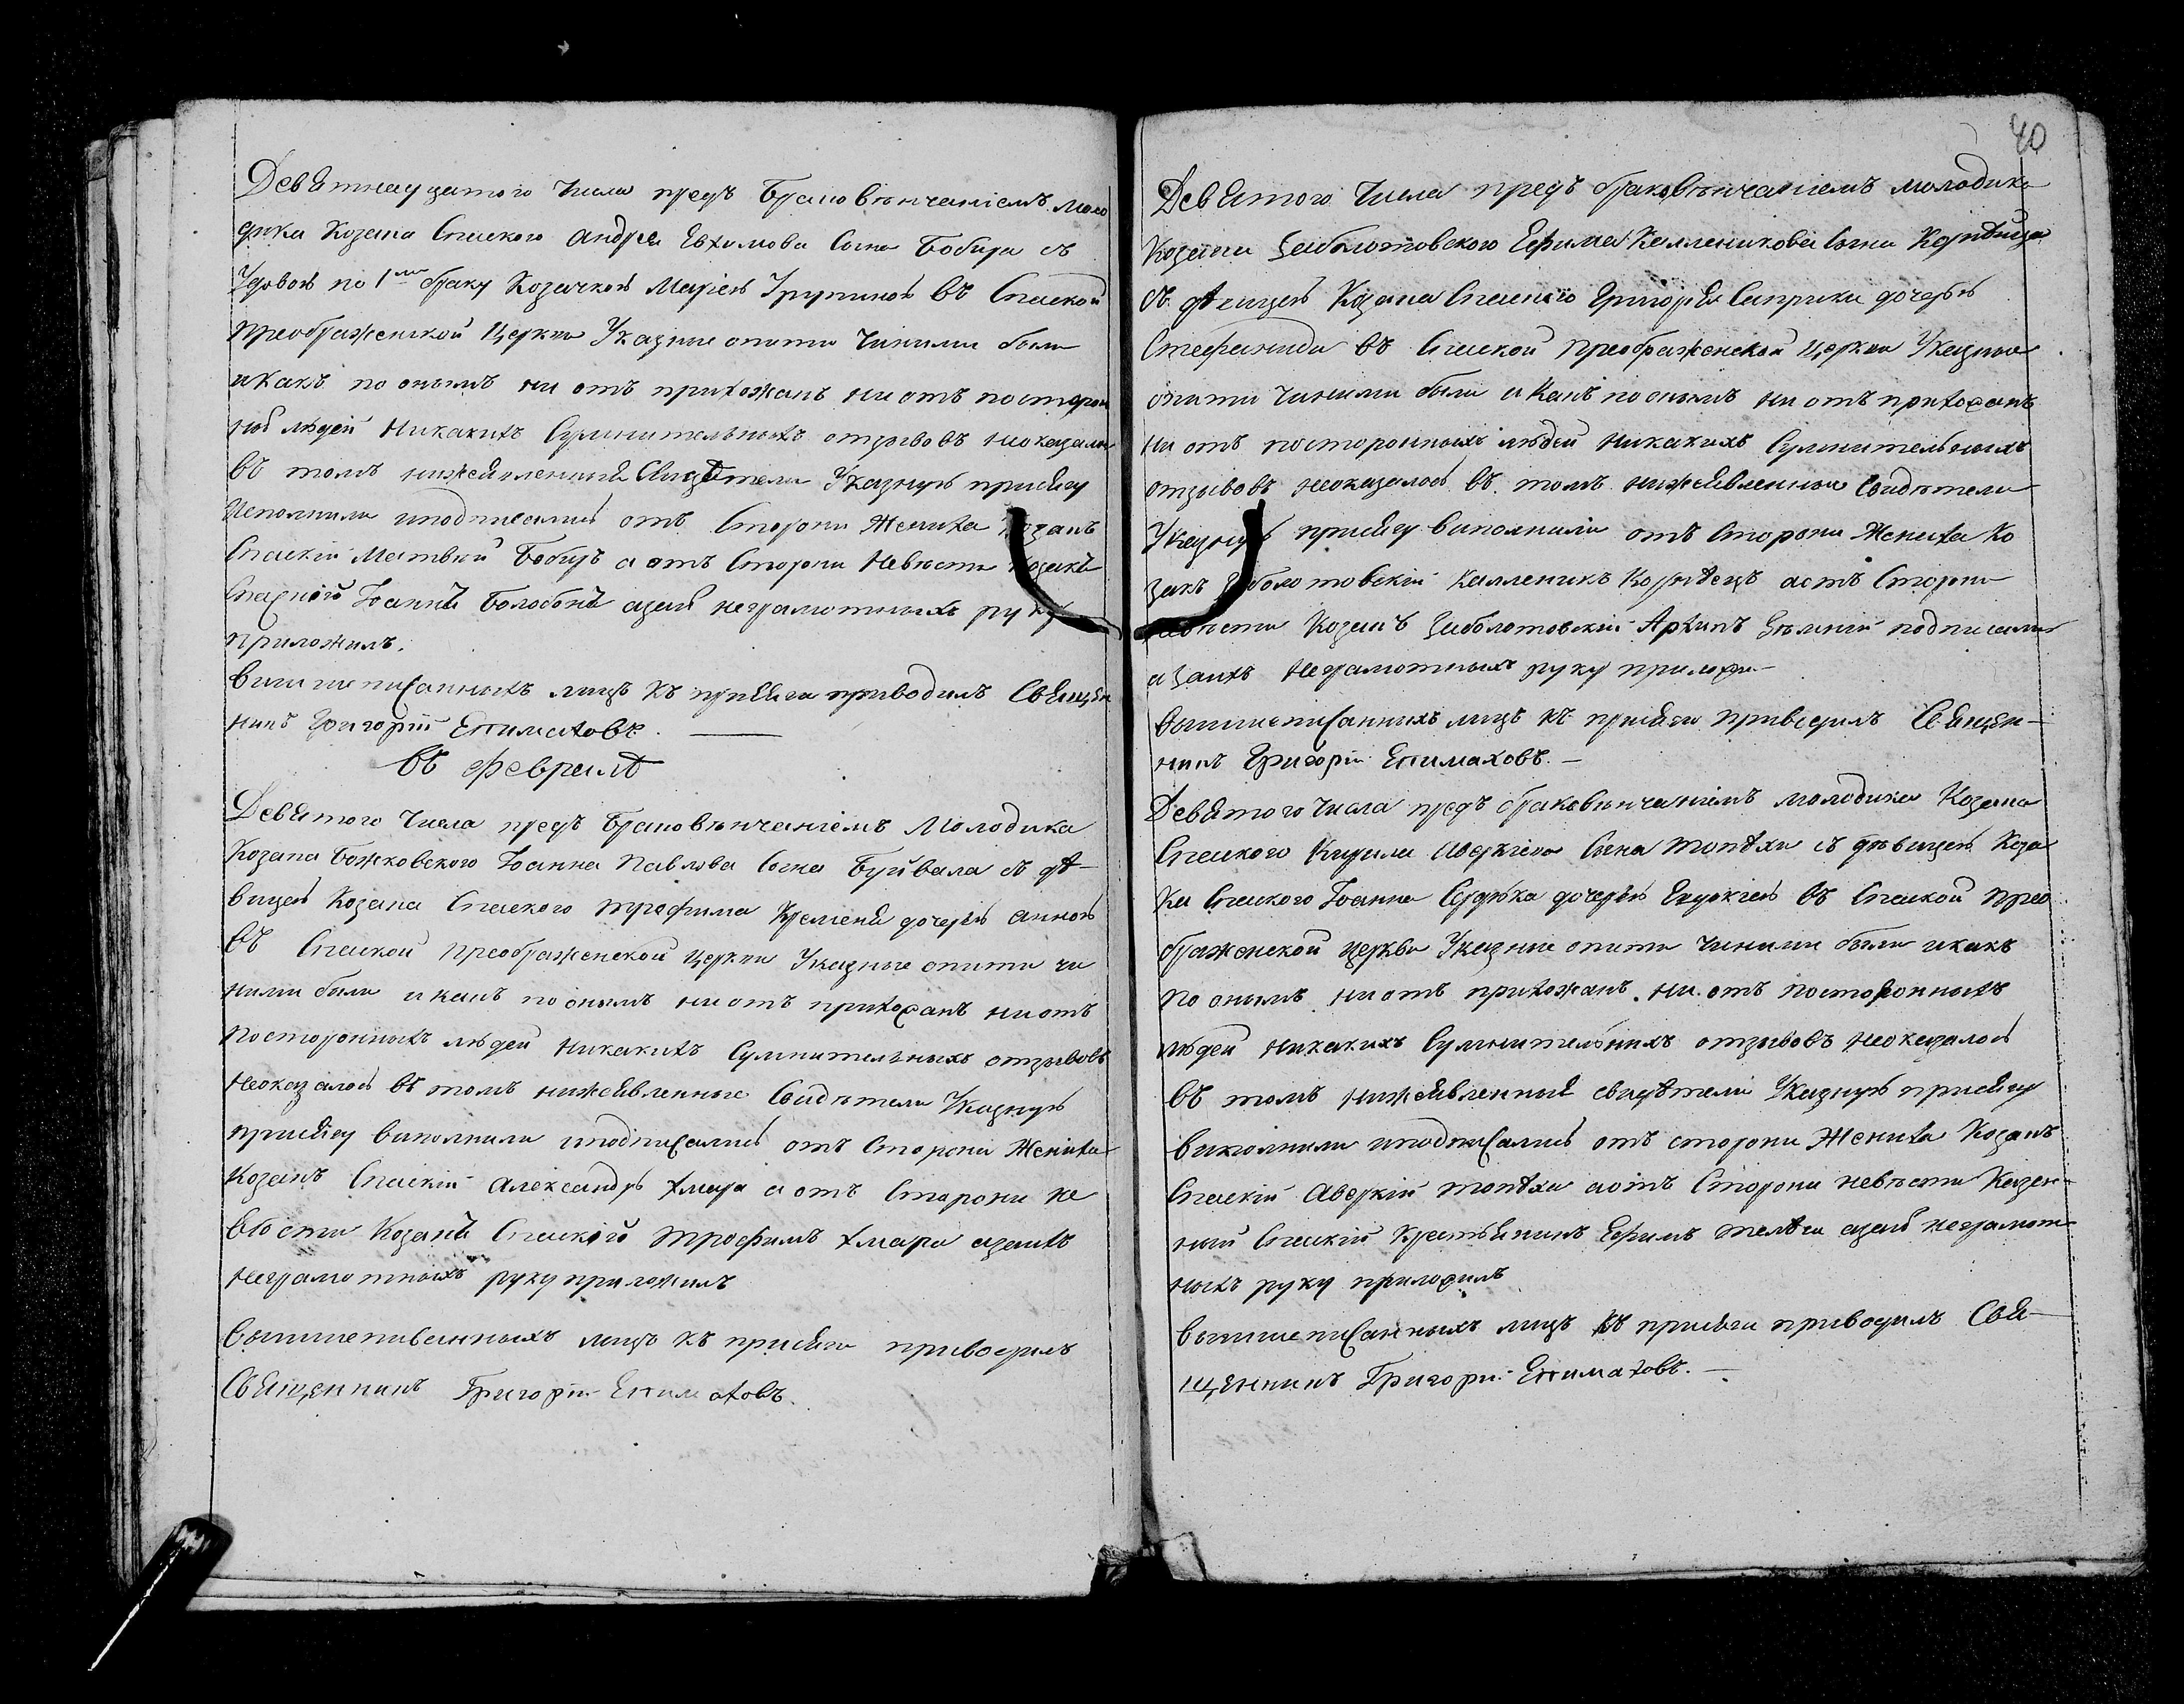 Девятнадцатого Числа предъ Браковѣнчаніемъ моло
дика Козака Спаского Андрея Евхимова Сына Бобиря съ
Удовою по 1му браку Козачкою Маріею Трупиною въ Спаской
преображенской Церкви Указные опити Чиними были
и какъ по онымъ ни отъ прихожанъ ни отъ посторон
ныхъ людей Никакихъ Сумнительныхъ отзывовъ неоказалось
въ томъ нижеявленный Свидѣтели Указную присягу
Исполнили иподписались отъ Стороны Жениха Козакъ
Спаскій Матвѣй Бобирь а отъ Стороны Невѣсты Козакъ
Спаскій Іоаннъ Болобонъ а неграмотныхъ руку
приложилъ.
Вишшеписанныхъ лицъ къ присяги приводилъ Священ
никъ Григорій Епимаховъ.
Въ Февралѣ
Девятого Числа предъ Браковѣнчаніемъ Молодика
Козака Божковского Іоанна Павлова Сына Буйвала съ дѣ
вицею Козака Спаского Трофима Кременя дочерью Анною
Въ Спаской Преображенской Церкви Указные опити чи
ними были и какъ по онымъ ни отъ прихожанъ ни отъ
Посторонныхъ людей Никакихъ Сумнительныхъ отзывовъ
Неоказалось въ томъ нижеявленные Свидѣтели Указную
присягу виполнили иподписались отъ Стороны Жениха
Козакъ Спаскій Александръ Хмара а отъ Стороны не
вѣсты Козакъ Спаскій Трофимъ Хмара азаихъ
Неграмотныхъ руку приложилъ
Вышшеписанныхъ лицъ къ присяги приводилъ
Священникъ Григорій Епимаховъ.
40
Девятого Числа предъ браковѣнчаніемъ молодика
Козака Заболотовского Ефима Каленикова Сына Корѣвца
съ дѣвицею Козака Спаского Григорія Саприки дочерью
Стефанида въ Спаской Преображенской Церкви Указные
опити Чиними были и какъ по онымъ ни отъ прихожанъ
Ни отъ посторонныхъ людей Никакихъ Сумнительныхъ
отзывовъ неоказалось въ томъ нижеявленные Свидѣтели
Указную присягу виполнили отъ Стороны Жениха Ко
закъ Заболотовскій Калленикъ Корѣвецъ аотъ Стороны
невѣсты Козакъ Заболотовскій Архипъ подписались
азаихъ Неграмотныхъ руку приложи
Вышшеписанныхъ лицъ къ присяги приводилъ Священ-
никъ Григорій Епимаховъ.
Девятого Числа предъ браковѣнчаніемъ молодика Козака
Спаского Кирила Аверкіева Сына Топѣхи съ дѣвицею Коза
ка Спаского Іоанна Сердюка дочерью Евдокіею въ Спаской Прео
браженской церкви Указные опити чиними были икакъ
По онымъ ни отъ прихожанъ ни отъ Посторонныхъ
людей никакихъ Сумнительныхъ отзывовъ Неоказалось
въ томъ нижеявленный свидѣтели Указную присягу
Виполнили иподписались отъ стороны Жениха Козакъ
Спаскій Аверкій Топѣха аотъ Стороны невѣсты Казен-
ный Спаскій Крестьянинъ Ефимъ Телѣга неграмот
ныхъ руку приложилъ
Вышшеписанныхъ лицъ къ присяги приводилъ Свя
щенникъ Григорій Епимаховъ.